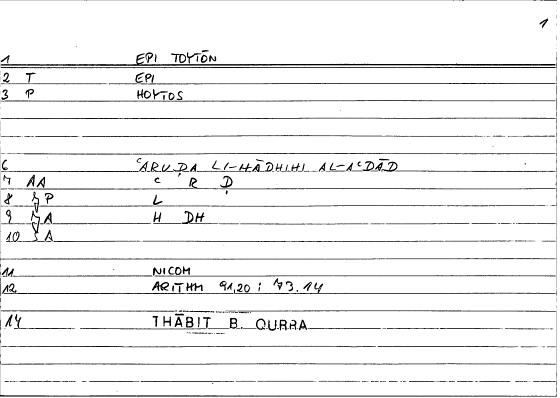 1
1 EPI TOYTŌN
2 T EPI
3 P HOYTOS
6 ʿARUḌA LI-HĀDHIHI AL-AʿDĀD
7 AA ʿ R Ḍ
8 P L
9 A H DH
10 A
11 NICOM
12 ARITHM 91,20 ; 73.14
14 THĀBIT B. QURRA